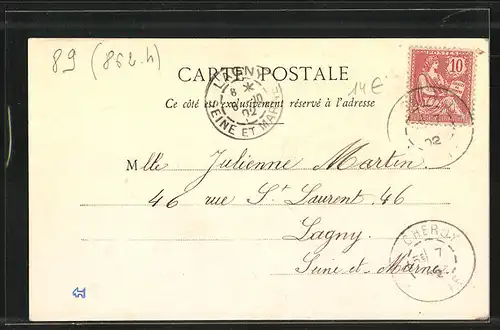 89 (862.h)
CARTE POSTALE
14€
Ce côté est exclusivement réservé à l'adresse
10
SEINE ET MARNE
02
Mlle Julienne Martin
46 rue St Laurent 46
Lagny
Seine-et-Marne
CHEROY
7